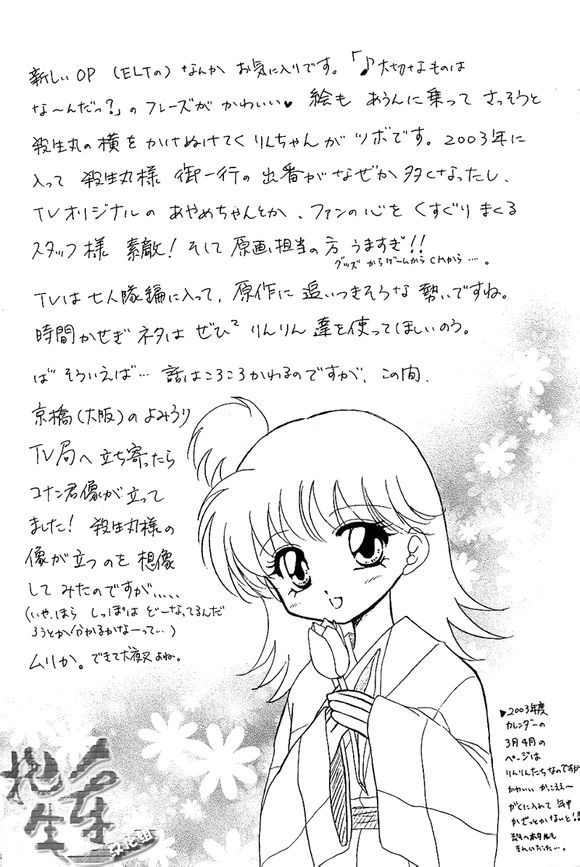 新しいOP (ELTの) なんか お気に入りです。「♪大切なものは
な〜んだっ?」のフレーズが かわいい♥ 絵も あうんに乗って さっそうと
殺生丸の横を かけぬけてく りんちゃんが ツボです。2003年に
入って 殺生丸様 御一行の 出番がなぜか 多くなったし、
TVオリジナルの あやめちゃんとか、ファンの心を くすぐり まくる
スタッフ様 素敵! そして 原画担当の方 うますぎ!!
グッズ からゲームから CMから…。
TVは七人隊編に入って、原作に 追いつきそうな 勢いですね。
時間かせぎ ネタは ぜひ² りんりん 達を使ってほしいのう。
ば そういえば… 話はころころかわるのですが、この間、
京橋(大阪)の よみうり
TV局へ 立ち寄ったら
コナン君像が立って
ました! 殺生丸様の
像が立つのを 想像
して みたのですが.....
(いや、ほら しっぽは どーなってるんだ
ろうとか(わかるかなーって…)
ムリか。できて犬夜叉よね。
▶2003年度
カレンダーの
3月4月の
ページは
りんりんたちなのですが
かわいい かっこええ〜
がくに入れて 年中
かざっとかないと!!
きれいだった…。